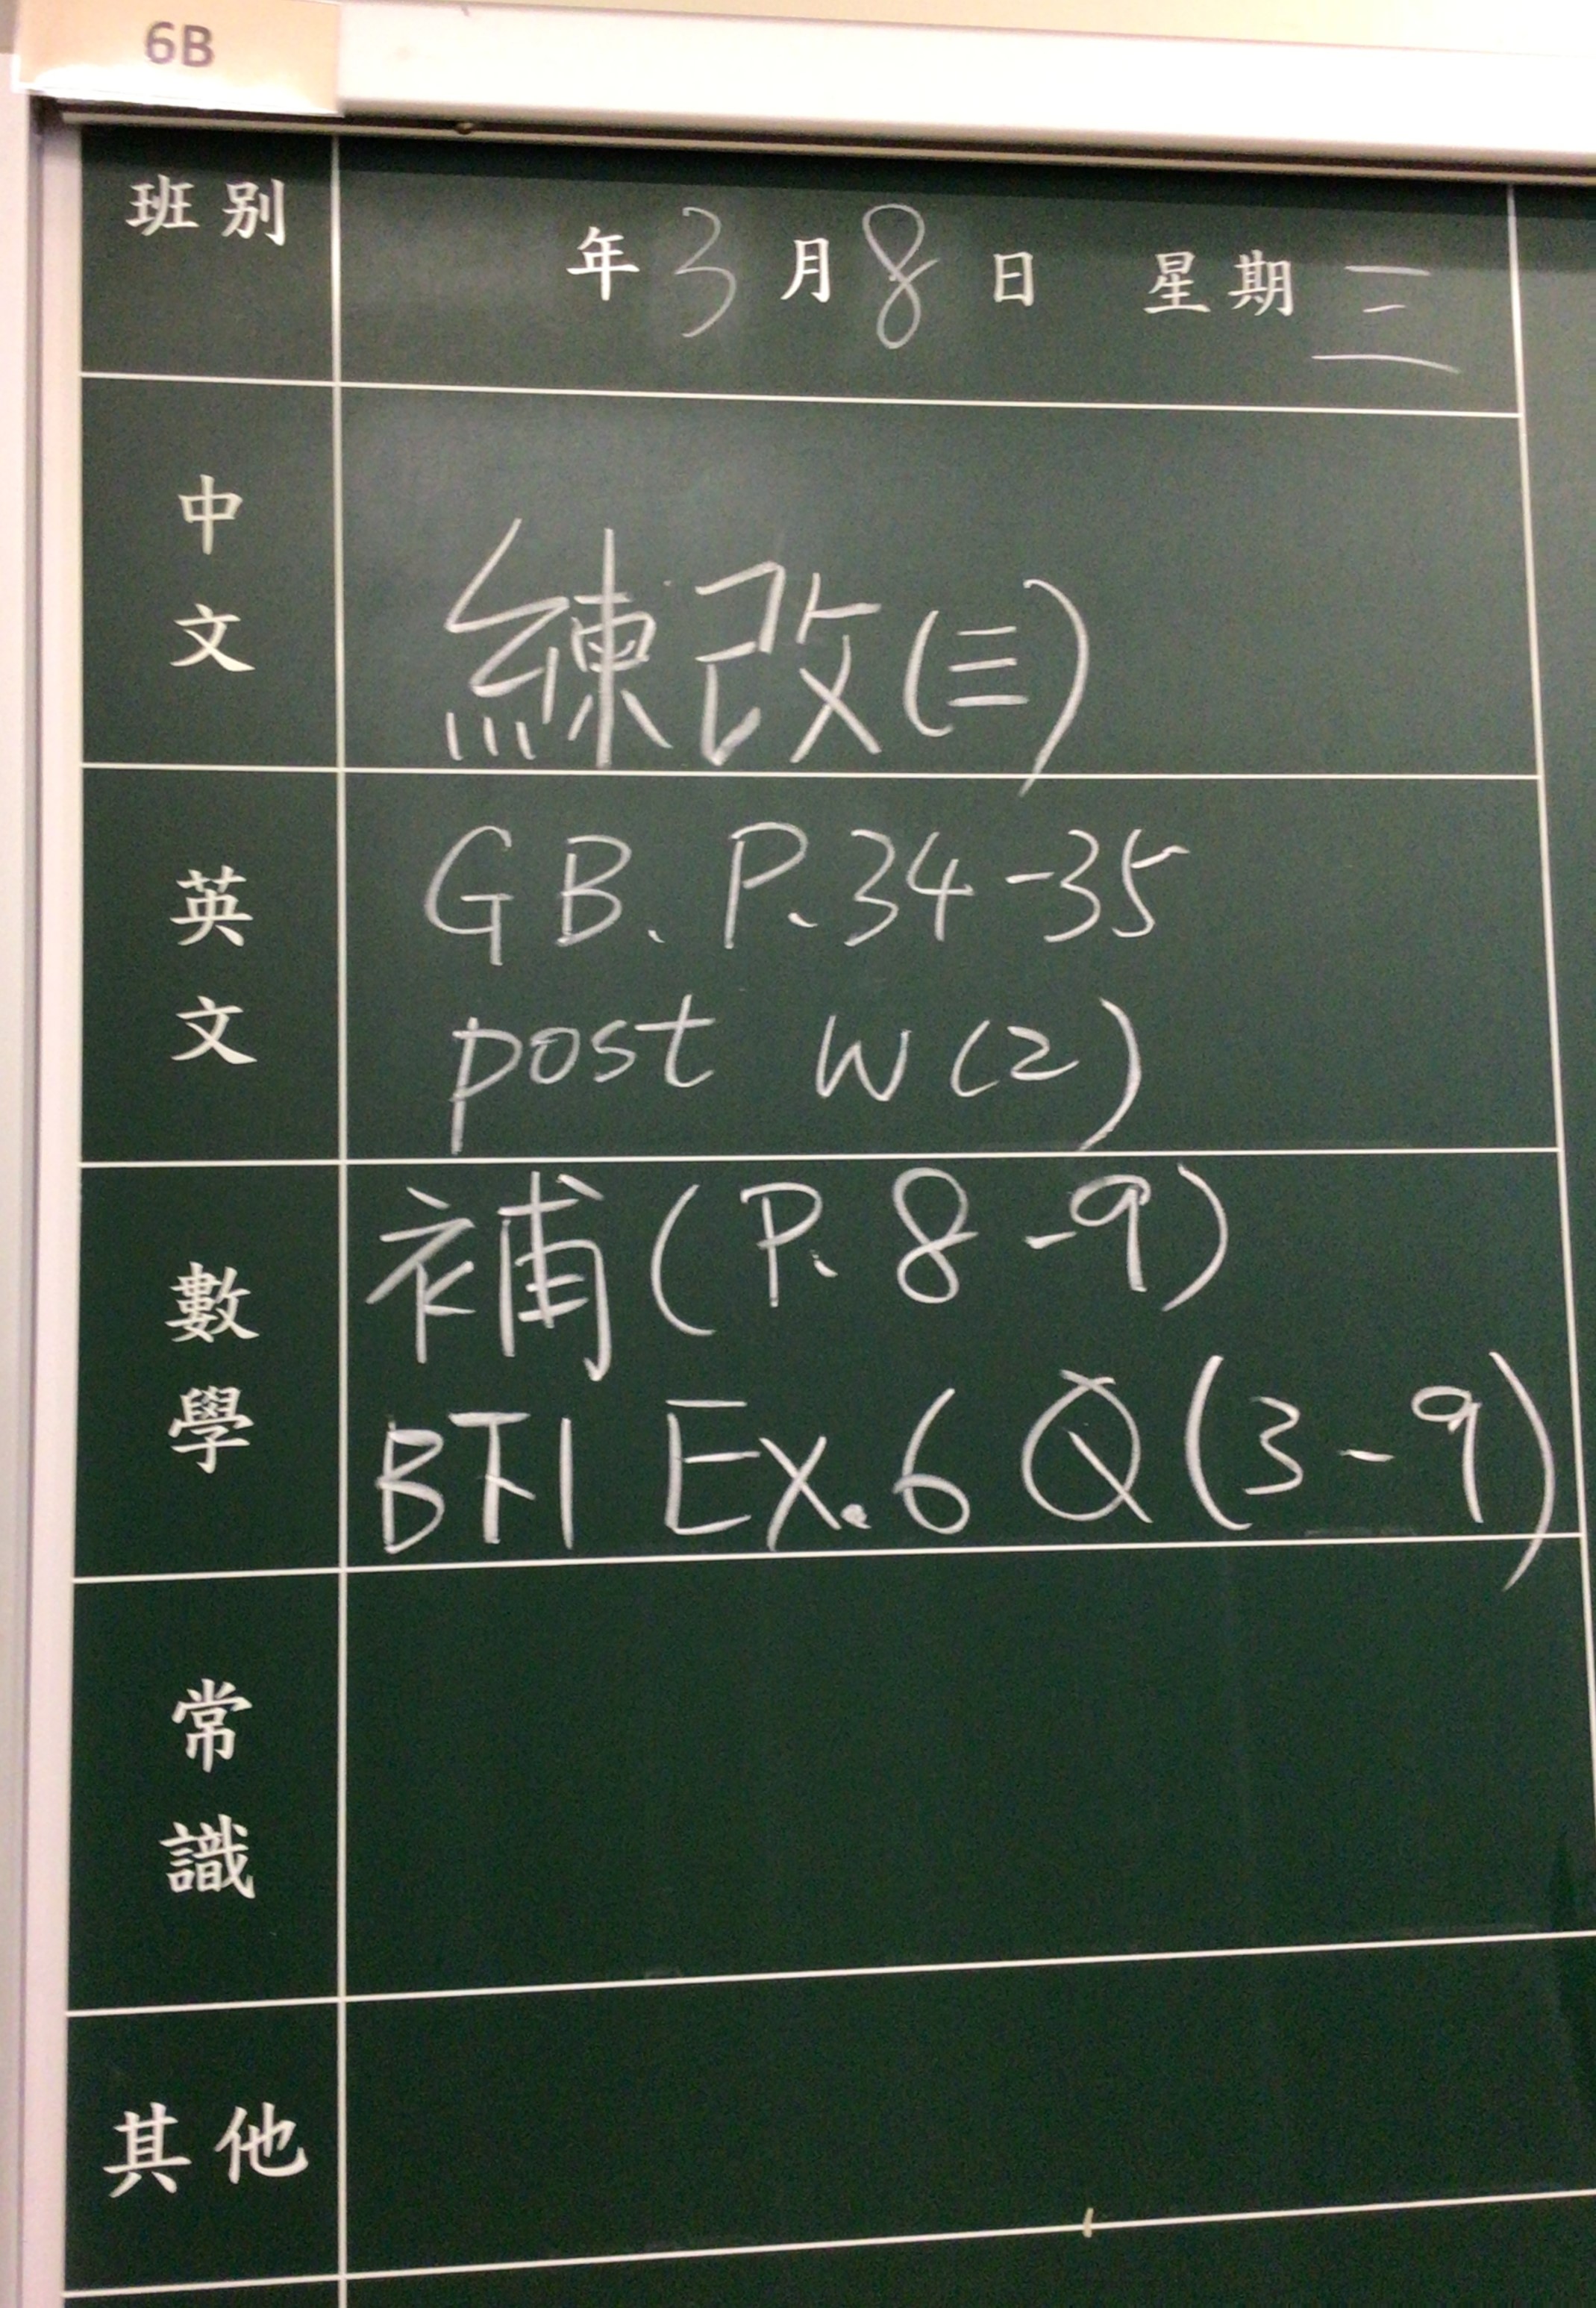 6B
班別 年3月8日 星期三
中文 練改(三)
英文 GB. P.34-35
post W(2)
數學 補(P.8-9)
BT1 Ex.6 Q(3-9)
常識
其他